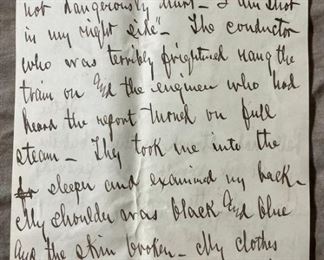 not dangerously hurt - I am shot
in my right side" - The conductor
who was terribly frightened rang the
train on and the engineer who had
heard the report turned on full
steam - They took me into the
sleeper and examined my back -
My shoulder was black and blue
and the skin broken - My clothes